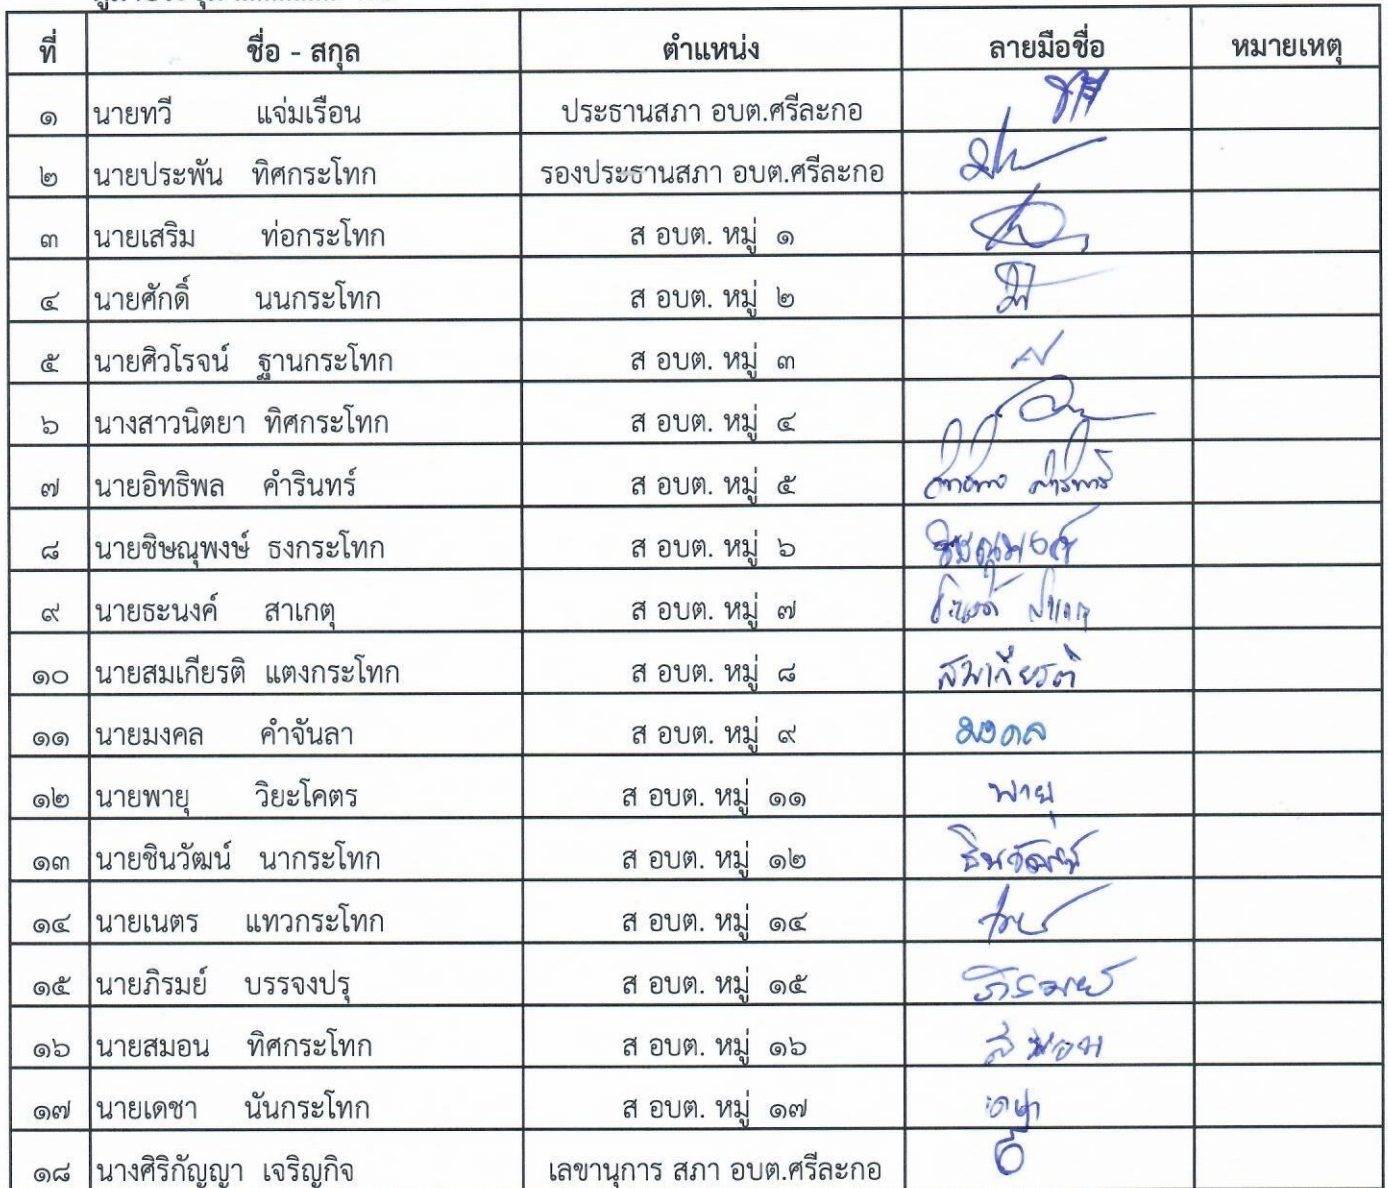 ที่ ชื่อ - สกุล ตำแหน่ง ลายมือชื่อ หมายเหตุ
๑ นายทวี แจ่มเรือน ประธานสภา อบต.ศรีละกอ
๒ นายประพัน ทิศกระโทก รองประธานสภา อบต.ศรีละกอ
๓ นายเสริม ท่อกระโทก ส อบต. หมู่ ๑
๔ นายศักดิ์ นนกระโทก ส อบต. หมู่ ๒
๕ นายศิวโรจน์ ฐานกระโทก ส อบต. หมู่ ๓
๖ นางสาวนิตยา ทิศกระโทก ส อบต. หมู่ ๔
๗ นายอิทธิพล คำรินทร์ ส อบต. หมู่ ๕
๘ นายชิษณุพงษ์ ธงกระโทก ส อบต. หมู่ ๖
๙ นายธะนงค์ สาเกตุ ส อบต. หมู่ ๗
๑๐ นายสมเกียรติ แตงกระโทก ส อบต. หมู่ ๘ สมเกียรติ
๑๑ นายมงคล คำจันลา ส อบต. หมู่ ๙ มงคล
๑๒ นายพายุ วิยะโคตร ส อบต. หมู่ ๑๑ พายุ
๑๓ นายชินวัฒน์ นากระโทก ส อบต. หมู่ ๑๒ ชินวัฒน์
๑๔ นายเนตร แทวกระโทก ส อบต. หมู่ ๑๔
๑๕ นายภิรมย์ บรรจงปรุ ส อบต. หมู่ ๑๕ ภิรมย์
๑๖ นายสมอน ทิศกระโทก ส อบต. หมู่ ๑๖
๑๗ นายเดชา นันกระโทก ส อบต. หมู่ ๑๗
๑๘ นางศิริกัญญา เจริญกิจ เลขานุการ สภา อบต.ศรีละกอ